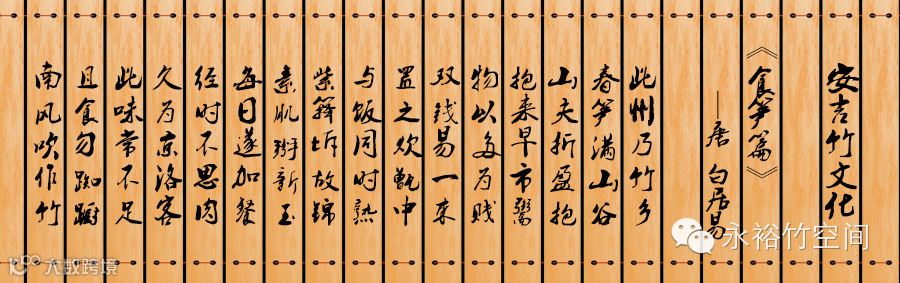 安吉竹文化
《食笋篇》
——唐 白居易
此州乃竹乡
春笋满山谷
山夫折盈抱
抱来早市鬻
物以多为贱
双钱易一束
置之炊甑中
与饭同时熟
紫箨坼故锦
素肌掰新玉
每日遂加餐
经时不思肉
久为京洛客
此味常不足
且食勿踟蹰
南风吹作竹
永裕竹空间
大数跨境